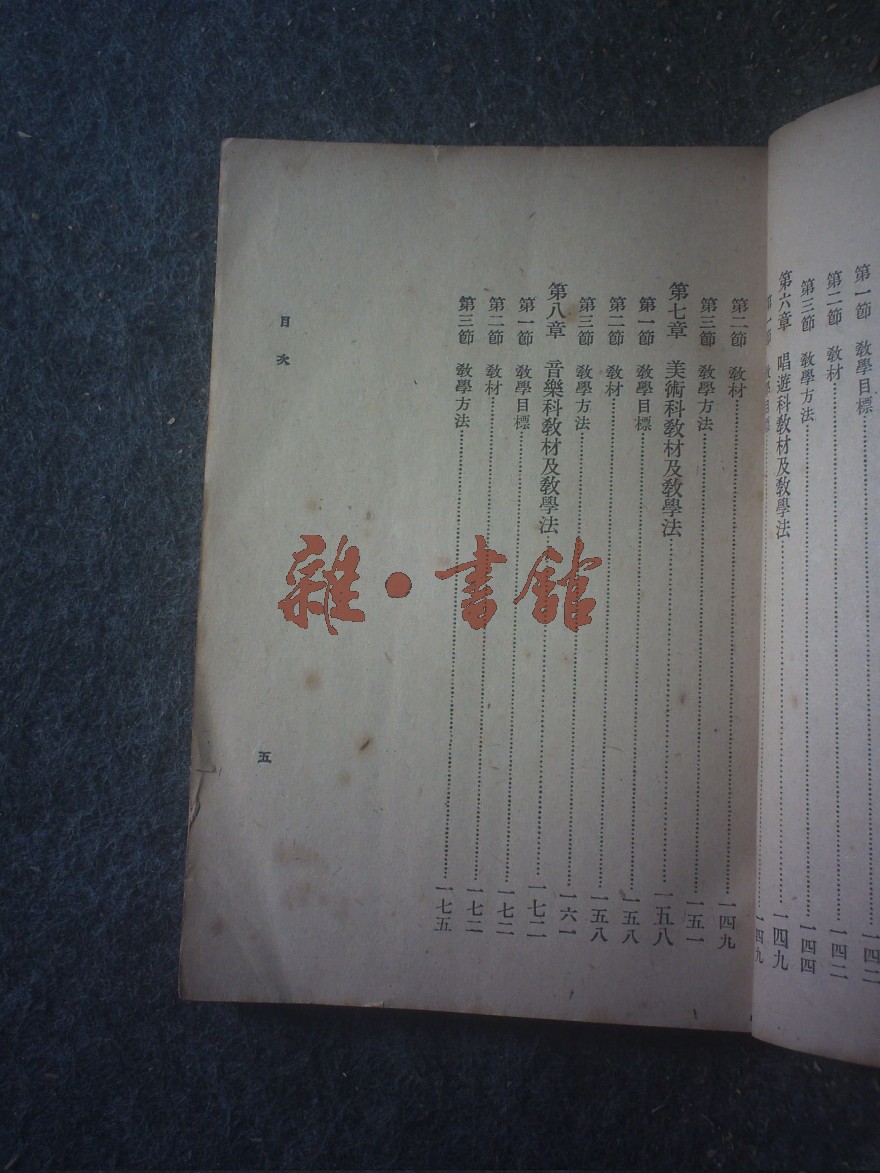 第一節 敎學目標……一四二
第二節 敎材……一四二
第三節 敎學方法……一四四
第六章 唱遊科敎材及敎學法……一四九
第一節 敎學目標……一四九
第二節 敎材……一四九
第三節 敎學方法……一五一
第七章 美術科敎材及敎學法……一五八
第一節 敎學目標……一五八
第二節 敎材……一五八
第三節 敎學方法……一六一
第八章 音樂科敎材及敎學法……一七二
第一節 敎學目標……一七二
第二節 敎材……一七二
第三節 敎學方法……一七五
目次
五
雜·書館